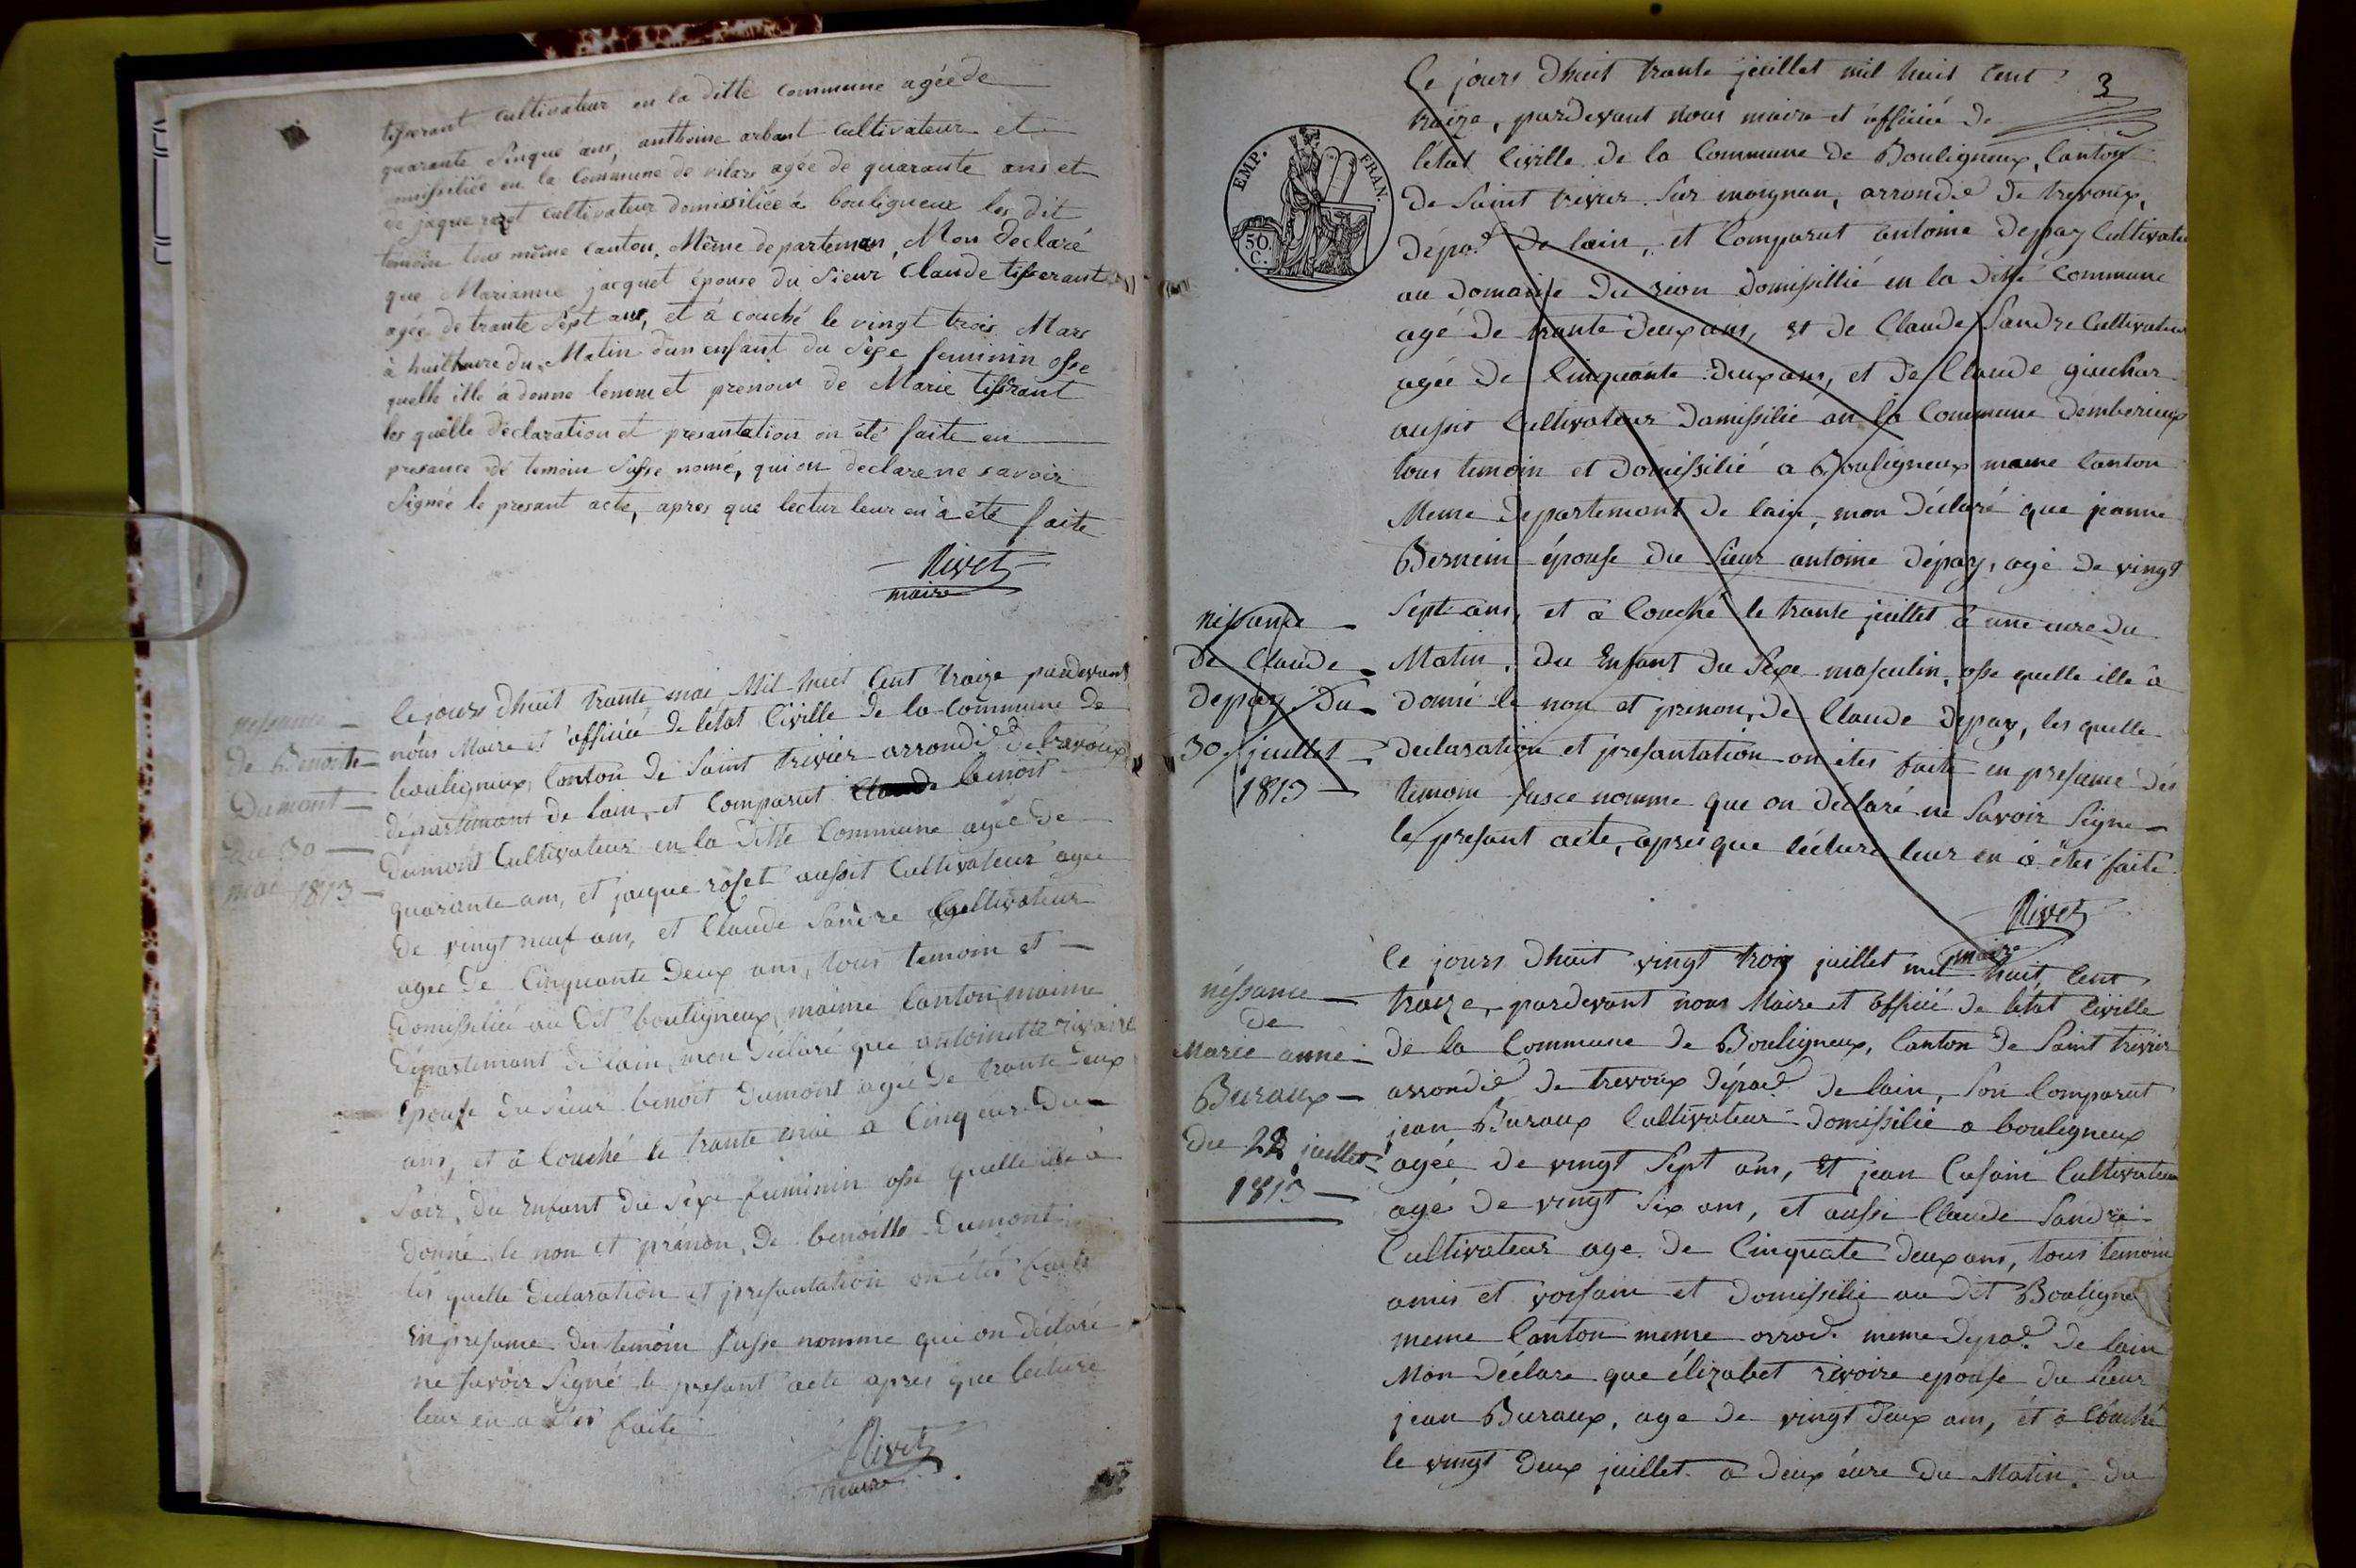 tisserant cultivateur en la ditte commune agée de
quarante sinque ans, anthoine arbant cultivateur et
en la Commune de vilars agée de quarante ans et
de jaque rozet cultivateur domissiliée à bouligneux les dit
temoin tous même canton, Même departeman, Mon declaré
que Marianne jacquet épouse du Sieur Claude tisserant
agée de trante Sept ans, et à couché le vingt trois Mars
à huit heure du Matin dun enfant du Sexe feminin osse
quelle ille à donne lenom et prenom de Marie tissrant
les quelle declaration et presantation on été faite en
presance dé temoin Susse nomé, qui on declare ne savoir
Signée le presant acte, apres que lectur leur en à été faite
Rivet
maire
nessance
de Benoite
Dumont
du 30
mai 1813
le jours dhuit trante mai Mil huit Cent traize pardevant
nous Maire et officié de létat Civille de la Commune de
bouligneux, Canton de Saint trivier arrondis de trevoux
départemant de lain, et Comparut Claude benoit
Dumont Cultivateur en la ditte Commune agée de
quarante ans, et jacque roset aussit Cultivateur agée
de vingt neuf ans, et Claude Sandre Cultivateur
agée de Cinquante Deux ans, tous temoin et
Domissilié au Dit bouligneux maime Canton maime
Département de lain, mon déclaré que antoinette rivoire
Epouse du sieur benoit Dumont agée de trante Deux
ans, et à Couché le trante mai a Cinq eure du
Soir, du Enfant du Sexe feminin osse quelle ille à
donné le non et prénon, de benoitte Dumont
les quelle declaration et presantation on étés faite
En presance des temoin susse nomme qui on déclaré
ne savoir Signé le presant acte apres que lecture
leur en a étés faite
Rivet
maire
3
EMP. FRAN.
50. C.
le jours dhuit trante juillet mil huit Cent
traize, pardevant nous maire et officié de
létat Civille de la Commune de Bouligneux, Canton
de Saint trivier sur moignan, arrondis de trevoux,
dépad de lain, et Comparut antoine depay Cultivateu
au domaine du rion domissillié en la ditte Commune
agé de trante deux ans, et de Claude Sandre Cultivateu
agée de Cinquante deux ans, et de Claude guichar
aussit Cultivateur Domissilié an la Commune dembérieux
tous temoin et domissilié a Bouligneux maeme Canton
Meme departemant de lain, mon déclaré que janne
Bernein épouse du Sieur antoine dépay, agé de vingt
Sept ans, et à Couché le trante juillet à une eure du
Matin, du Enfant du Sexe masculin, osse quelle ille à
donné le non et prenon, de Claude depay, les quelle
declaration et presantation on étés faite en presance dés
temoin susce nomme que on declaré ne savoir Signe
le presant acte, apres que lécture leur en à étés faite
Rivet
maire
néssance
de Claude
depay du
30 juillet
1813
le jours dhuit vingt trois juillet mil huit Cent
traize, pardevant nous Maire et officié de létat Civille
de la Commune de Bouligneux, Canton de Saint trivier
arrondis de trevoux dépad de lain, Son Comparut
jean Buraux Cultivateur Domissilié a bouligneux
agée de vingt Sept ans, Et jean Cusain Cultivateur
agé de vingt Six ans, et aussi Claude Sandre
Cultivateur age de Cinquate deux ans, tous temoin
amis et voisain et Domissilié au dit Bouligne
meme Canton meme arrod. meme depad. de lain
Mon déclare que élizabet rivoire epouse du Sieur
jean Buraux, age de vingt Deux ans, et à Couché
le vingt Deux juillet à deux éure du Matin, du
néssance
de
Marie anne
Buraux
du 22 juillet
1813